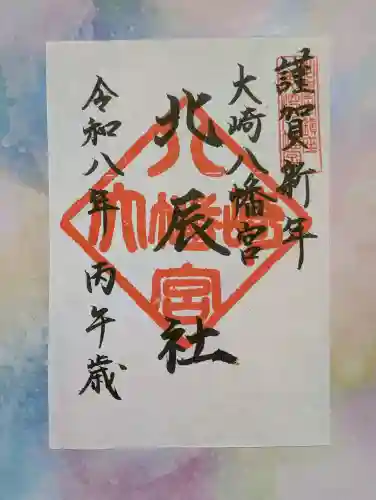 謹賀新年
大崎八幡宮
北辰社
令和八年 丙午歳
大崎八幡宮